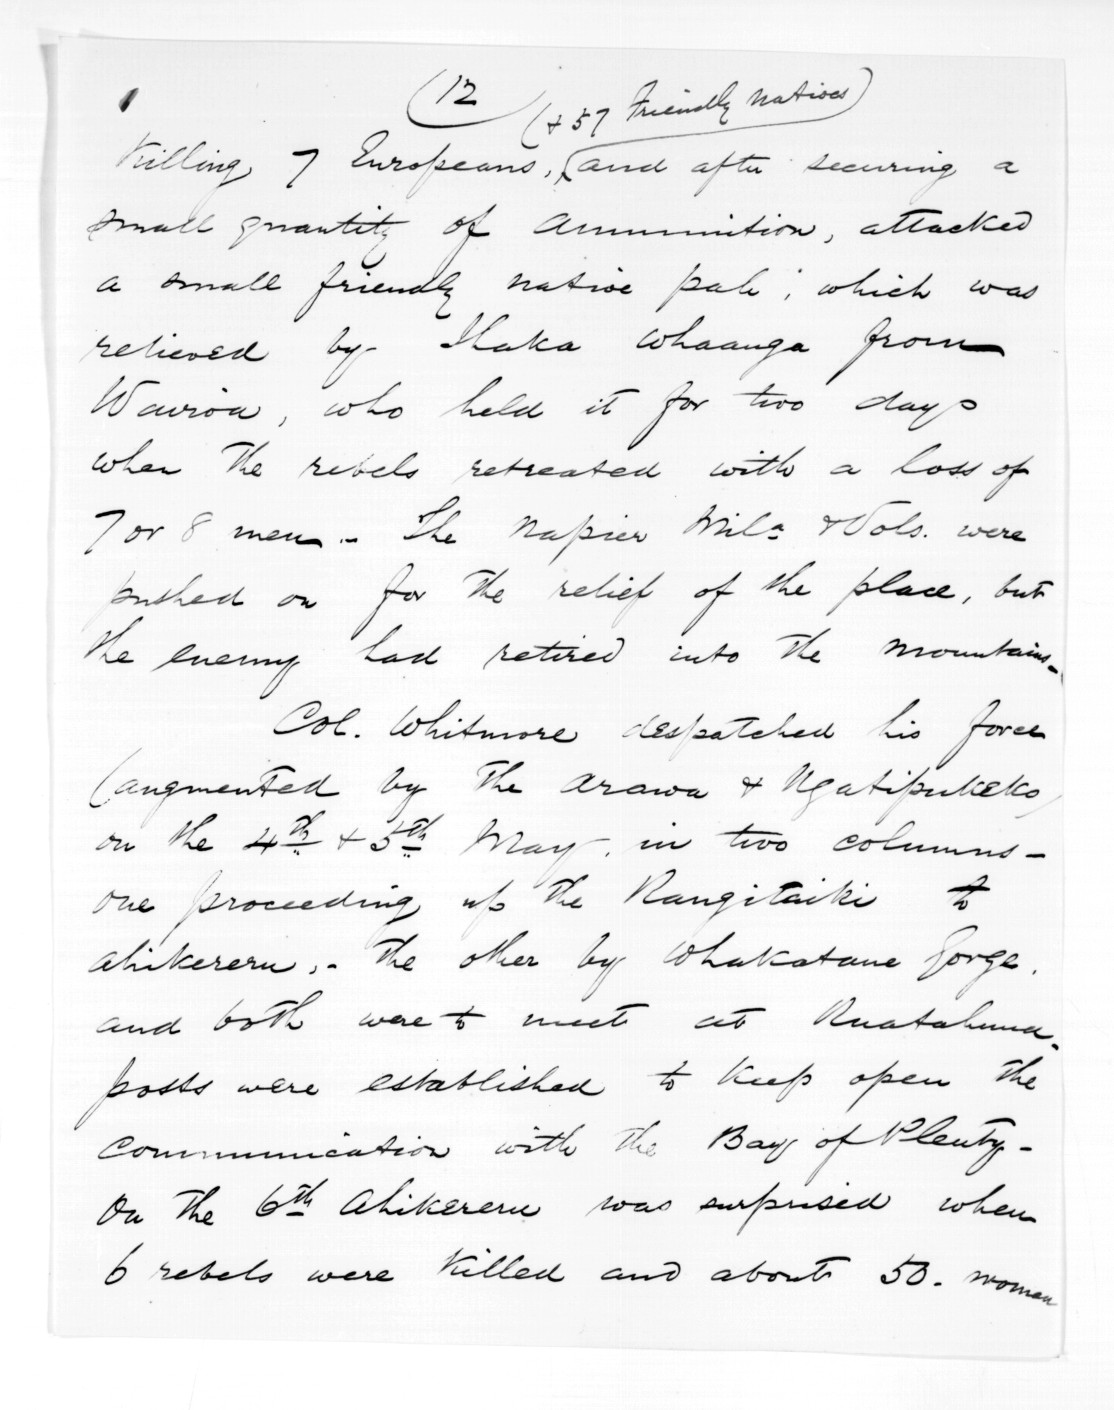 (12)
(+ 57 Friendly Natives)
Killing 7 Europeans, (and after securing a
small quantity of ammunition, attacked
a small friendly native pah; which was
relieved by Ihaka Whaanga from
Wairoa, who held it for two days
when the rebels retreated with a loss of
7 or 8 men. - The Napier Mila & Vols. were
pushed on for the relief of the place, but
the enemy had retired into the mountains -
Col. Whitmore despatched his force
(augmented by the Arawa & Ngatipukeko)
on the 4th & 5th May, in two columns -
one proceeding up the Rangitaiki to
Ahikereru, - the other by Whakatane Gorge,
and both were to meet at Ruatahuna.
posts were established to keep open the
communication with the Bay of Plenty -
On the 6th Ahikereru was surprised when
6 rebels were killed and about 50. women